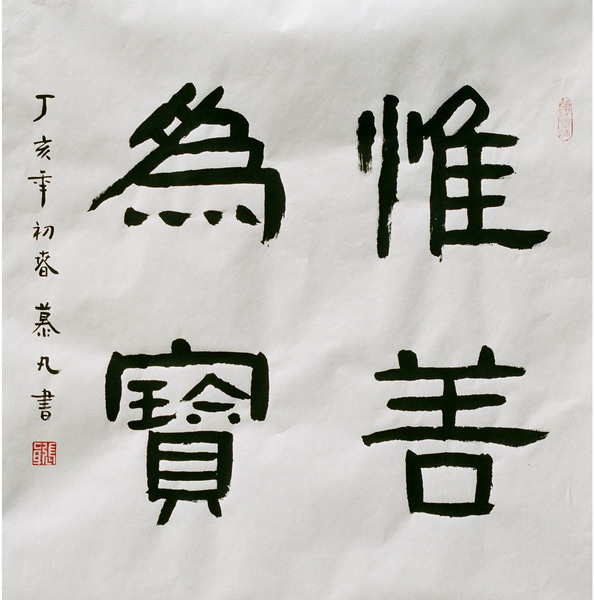 惟善
為寶
丁亥年初春慕凡書